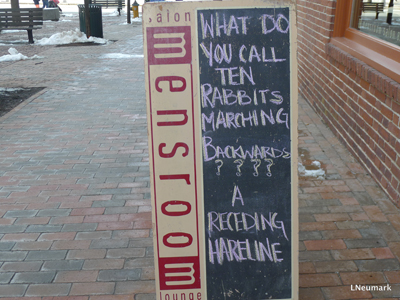 salon
mensroom
lounge
WHAT DO
YOU CALL
TEN
RABBITS
MARCHING
BACKWARDS
? ? ? ?
A
RECEDING
HARELINE
LNeumark